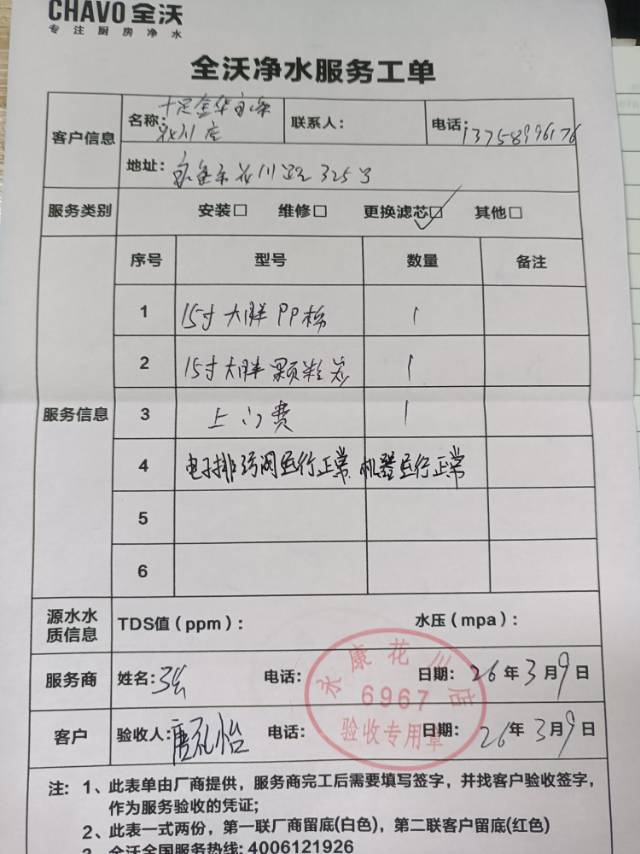 CHAVO 全沃
专注厨房净水
全沃净水服务工单
客户信息
名称: 十足金华永康
花川店
联系人:
电话: 13758996176
地址: 永康市花川路325号
服务类别 安装□ 维修□ 更换滤芯☑ 其他□
服务信息
序号 型号 数量 备注
1 15寸大胖PP棉 1
2 15寸大胖颗粒炭 1
3 上门费 1
4 电子排污阀运行正常 机器运行正常
5
6
源水水质信息 TDS值(ppm): 水压(mpa):
服务商 姓名: 电话: 日期: 26年3月9日
客户 验收人: 唐礼怡 电话: 日期: 26年3月9日
永康花川店
6967
验收专用章
注: 1、此表单由厂商提供,服务商完工后需要填写签字,并找客户验收签字,
作为服务验收的凭证;
2、此表一式两份,第一联厂商留底(白色),第二联客户留底(红色)
3、全沃全国服务热线: 4006121926